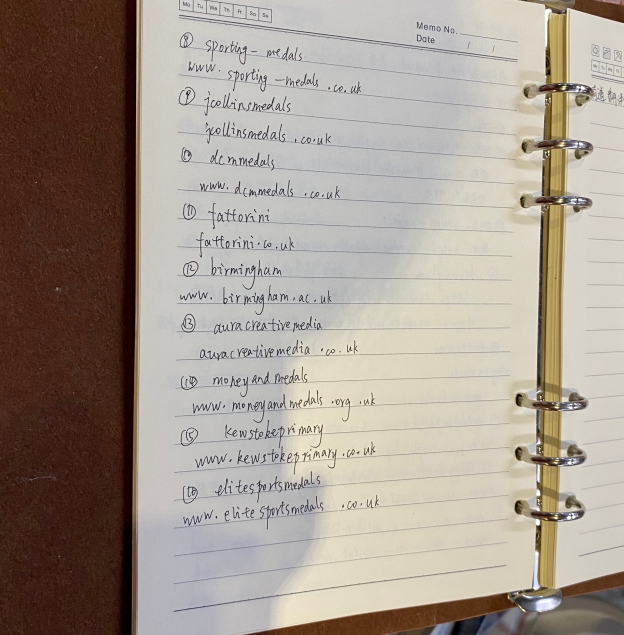 Mo Tu We Th Fr Sa Su
Memo No.
Date / /
⑧ sporting-medals
www.sporting-medals.co.uk
⑨ jcollinsmedals
jcollinsmedals.co.uk
⑩ dcmmedals
www.dcmmedals.co.uk
⑪ fattorini
fattorini.co.uk
⑫ birmingham
www.birmingham.ac.uk
⑬ auracreativemedia
auracreativemedia.co.uk
⑭ moneyandmedals
www.moneyandmedals.org.uk
⑮ kewstokeprimary
www.kewstokeprimary.co.uk
⑯ elitesportsmedals
www.elitesportsmedals.co.uk